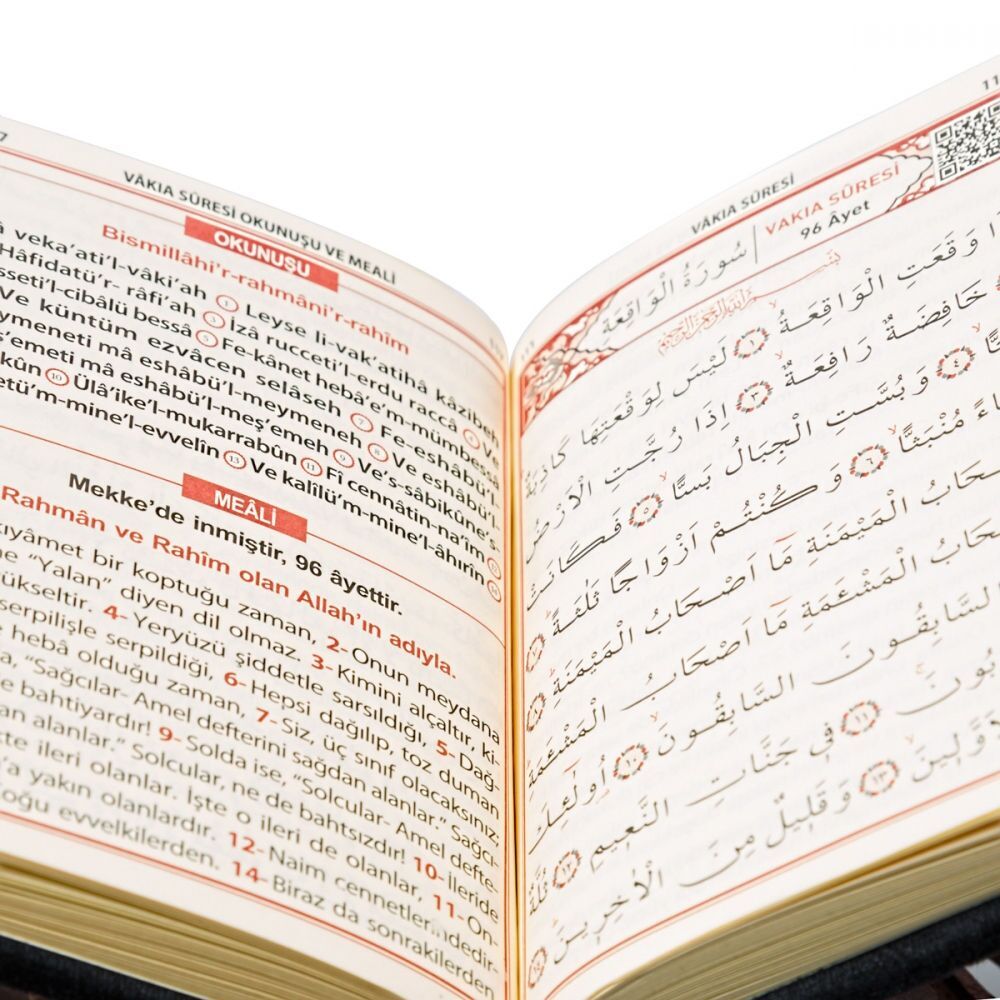 7
VÂKIA SÛRESİ OKUNUŞU VE MEALİ
OKUNUŞU
Bismillâhi'r-rahmâni'r-rahîm
veka'ati'l-vâki'ah ① Leyse li-vak'atihâ kâzibeh
Hâfidatü'r- râfi'ah ③ İzâ rucceti'l-erdu raccâ ④ Ve
bessâ ⑤ Fe-kânet hebâe'm-mümbessâ
Ve küntüm ezvâcen selâseh ⑦ Fe-eshâbü'l-
meymeneti mâ eshâbü'l-meymeneh ⑧ Ve eshâbü'l-
mâ eshâbü'l-meş'emeh ⑨ Ve's-sâbikûne's-
⑩ Ülâ'ike'l-mukarrabûn ⑪ Fî cennâtin-na'îm ⑫
mine'l-evvelîn ⑬ Ve kalîlü'm-mine'l-âhırîn ⑭
MEÂLİ
Mekke'de inmiştir, 96 âyettir.
Rahmân ve Rahîm olan Allah'ın adıyla.
kıyâmet bir koptuğu zaman, 2- Onun meydana
"Yalan" diyen dil olmaz. 3- Kimini alçaltır, ki-
yükseltir. 4- Yeryüzü şiddetle sarsıldığı, 5- Dağ-
serpilişle serpildiği, 6- Hepsi dağılıp, toz duman
heba olduğu zaman, 7- Siz, üç sınıf olacaksınız;
"Sağcılar- Amel defterini sağdan alanlar." Sağcı-
bahtiyardır! 9- Solda ise, "Solcular- Amel defte-
alanlar." Solcular, ne de bahtsızdır! 10- İleride
ileri olanlar. İşte o ileri de olanlar, 11- On-
yakın olanlardır. 12- Naim cennetlerindedir-
Çoğu evvelkilerden. 14- Biraz da sonrakilerden
11
VÂKIA SÛRESİ
سُورَةُ الْوَاقِعَةِ
VAKIA SÛRESİ
96 Âyet
بِسْمِ اللّٰهِ الرَّحْمٰنِ الرَّحِيمِ
وَقَعَتِ الْوَاقِعَةُ ١ لَيْسَ لِوَقْعَتِهَا كَاذِبَةٌ
خَافِضَةٌ رَافِعَةٌ ٣ اِذَا رُجَّتِ الْاَرْضُ
٤ وَبُسَّتِ الْجِبَالُ بَسًّا ٥ فَكَانَتْ
مُنْبَثًّا ٦ وَكُنْتُمْ اَزْوَاجًا ثَلٰثَةً ٧
الْمَيْمَنَةِ مَٓا اَصْحَابُ الْمَيْمَنَةِ ٨
الْمَشْـَٔمَةِ مَٓا اَصْحَابُ الْمَشْـَٔمَةِ
السَّابِقُونَ السَّابِقُونَ ١٠ اُولٰٓئِكَ
١١ فِى جَنَّاتِ النَّعِيمِ ١٢ ثُلَّةٌ
١٣ وَقَلِيلٌ مِنَ الْاٰخِرِينَ ١٤